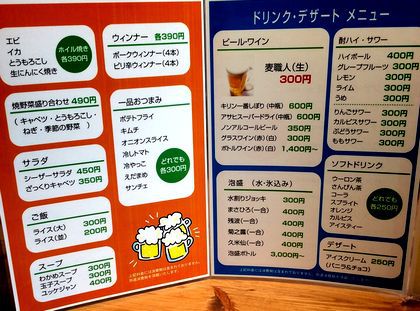 エビ
イカ
とうもろこし
生にんにく焼き
ホイル焼き
各390円
焼野菜盛り合わせ 490円
( キャベツ・とうもろこし・
ねぎ・季節の野菜 )
サラダ
シーザーサラダ 450円
ざっくりキャベツ 350円
ご飯
ライス(大) 300円
ライス(並) 200円
スープ
わかめスープ 300円
玉子スープ 300円
ユッケジャン 400円
ウィンナー 各390円
ポークウィンナー(4本)
ピリ辛ウィンナー(4本)
一品おつまみ
ポテトフライ
キムチ
オニオンスライス
冷しトマト
冷やっこ
えだまめ
サンチェ
どれでも
各300円
ドリンク・デザート メニュー
ビール・ワイン
麦職人(生)
300円
キリン一番しぼり(中瓶) 600円
アサヒスーパードライ(中瓶) 600円
ノンアルコールビール 350円
グラスワイン(赤)(白) 300円
ボトルワイン(赤) 1,400円~
泡盛 (水・氷込み)
水割りジョッキ 300円
まさひろ(一合) 400円
残波(一合) 400円
菊之露(一合) 400円
久米仙(一合) 400円
泡盛ボトル 3,000円~
酎ハイ・サワー
ハイボール 400円
グレープフルーツ 300円
レモン 300円
ライム 300円
うめ 300円
りんごサワー 300円
カルピスサワー 300円
ぶどうサワー 300円
ももサワー 300円
ソフトドリンク
ウーロン茶
さんぴん茶
コーラ
スプライト
オレンジ
カルピス
アイスティー
どれでも
各250円
デザート
アイスクリーム 250円
(バニラ&チョコ)